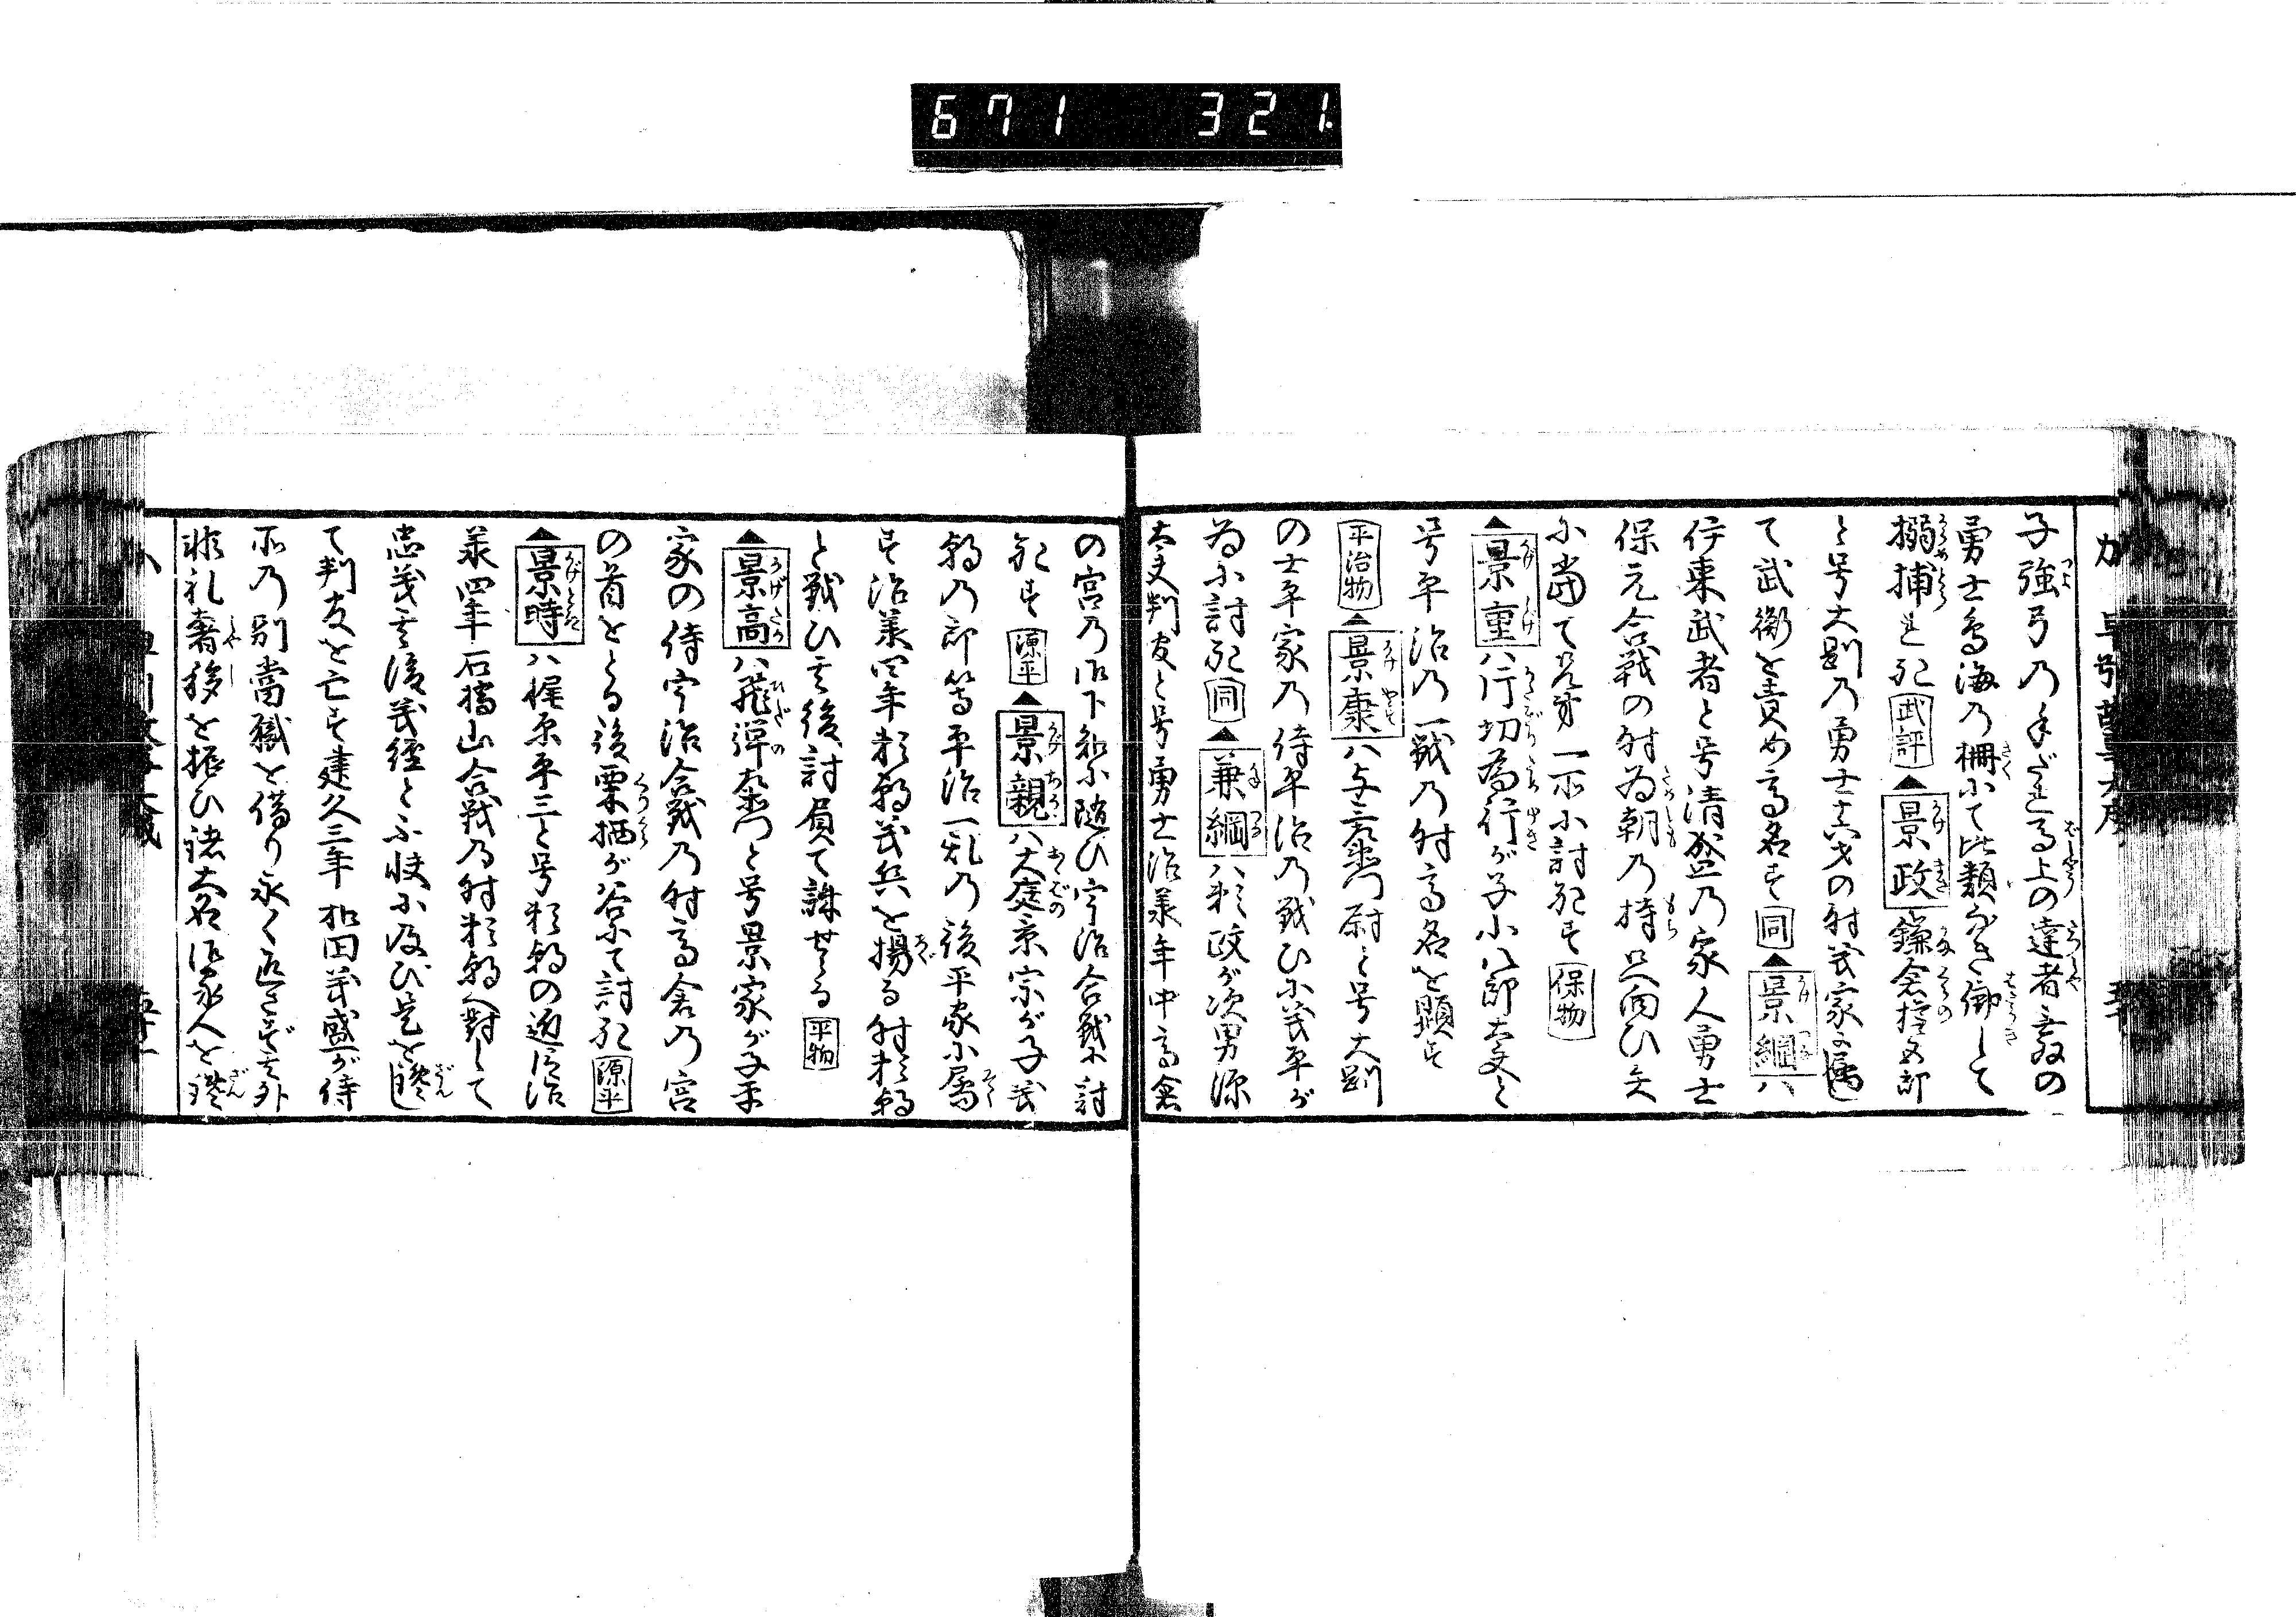 671 321
子強弓乃手だれ馬上の達者
勇士鳥海乃柵にて比類なき働して
搦捕れ死 武評 ▲景政 鎌倉権五郎
と号大剛乃勇士十六才の時義家に属し
て武衡を責め高名す 同 ▲景綱ハ
伊東武者と号清盛乃家人勇士
保元合戦の時為朝乃持口向ひ矢
に当て兄弟一所に討死す 保物
▲景重ハ片切為行が子小八郎大夫と
号平治乃一戦乃時高名を顕す
平治物 ▲景康ハ与三左衛門尉と号大剛
の士平家乃侍平治乃戦ひに義平が
為に討死 同 ▲兼綱ハ頼政が次男源
太夫判官と号勇士治承年中高倉
の宮乃御下知に随ひ宇治合戦に討
死す 源平 ▲景親ハ大庭景宗が子義
朝乃郎等平治一乱乃後平家に属
す治承四年頼朝義兵を揚る時頼朝
と戦ひ其後討負て誅せらる 平物
▲景高ハ飛弾左衛門と号景家が子平
家の侍宇治合戦乃時高倉乃宮
の首をとる後栗栖が谷にて討死 源平
▲景時ハ梶原平三と号頼朝の近臣治
承四年石橋山合戦乃時頼朝へ対して
忠義其後義経と不快に及び是を讒し
て判官を亡す建久三年和田義盛が侍
所乃別当職を借り永く返さず其外
非礼奢移を振ひ諸大名御家人を讒